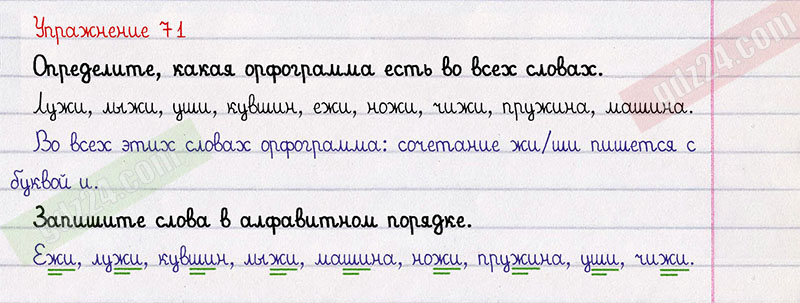 Упражнение 71
Определите, какая орфограмма есть во всех словах.
Лужи, лыжи, уши, кувшин, ежи, ножи, чижи, пружина, машина.
Во всех этих словах орфограмма: сочетание жи/ши пишется с
буквой и.
Запишите слова в алфавитном порядке.
Ежи, лужи, кувшин, лыжи, машина, ножи, пружина, уши, чижи.
gdz24.com
gdz24.com